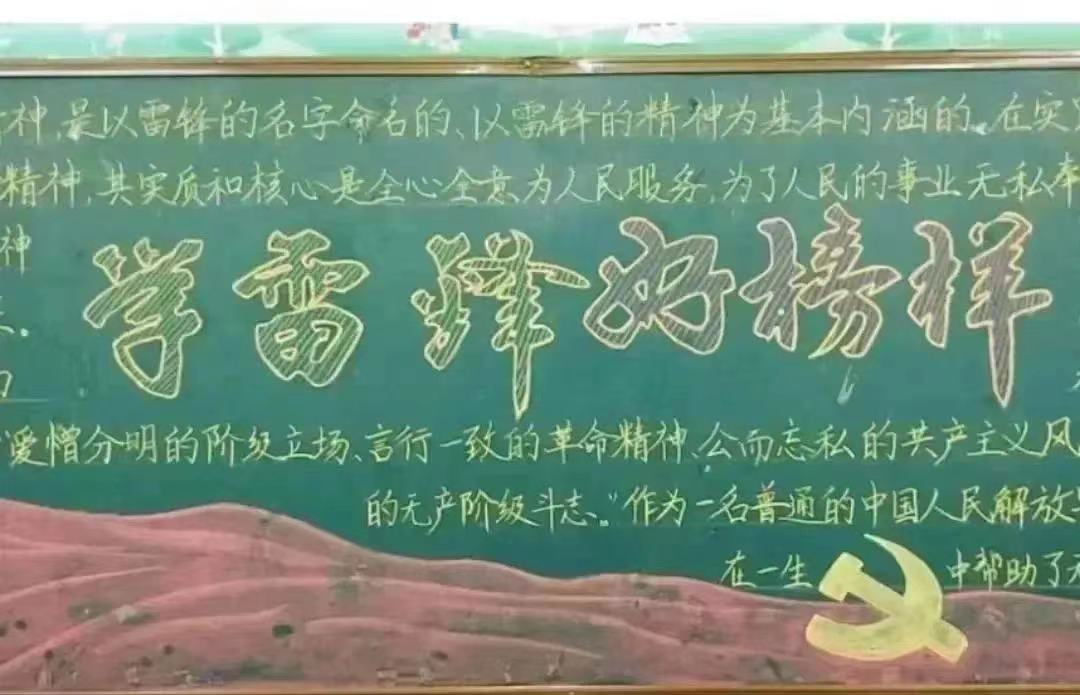 神,是以雷锋的名字命名的、以雷锋的精神为基本内涵的。在实
精神,其实质和核心是全心全意为人民服务,为了人民的事业无私奉
神
学雷锋好榜样
爱憎分明的阶级立场、言行一致的革命精神、公而忘私的共产主义风
的无产阶级斗志。”作为一名普通的中国人民解放
在一生中帮助了